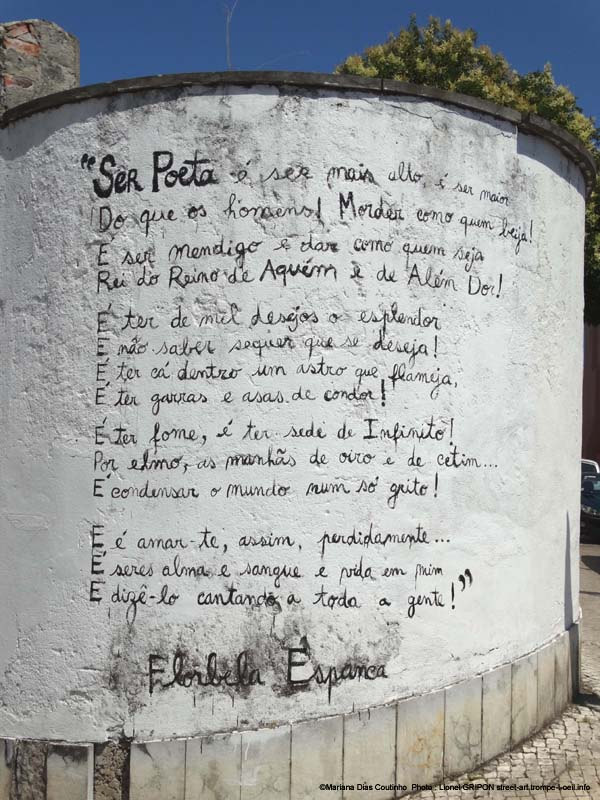 "Ser Poeta é ser mais alto, é ser maior
Do que os homens! Morder como quem beija!
É ser mendigo e dar como quem seja
Rei do Reino de Aquém e de Além Dor!
É ter de mil desejos o esplendor
E não saber sequer que se deseja!
É ter cá dentro um astro que flameja,
É ter garras e asas de condor!
É ter fome, é ter sede de Infinito!
Por elmo, as manhãs de oiro e de cetim...
É condensar o mundo num só grito!
E é amar-te, assim, perdidamente...
É seres alma e sangue e vida em mim
E dizê-lo cantando a toda a gente!"
Florbela Espanca
©Mariana Dias Coutinho Photo : Lionel GRIPON street-art.trompe-l-oeil.info